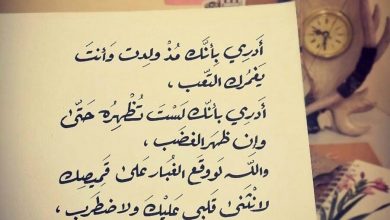 أَدرِي بِأنَّك مُذْ ولدت وَأنتَ
يَغمُرك التّعب ،
أدرِي بأنّك لَسْتَ تُظْهِرُه حَتّىٰ
وإن ظهَر الغضَب ،
واللّه لَو وقَع الغُبار عَلىٰ قَمِيصِك
لانْثَنىٰ قلبِي عليْكَ ولاضطرب ،